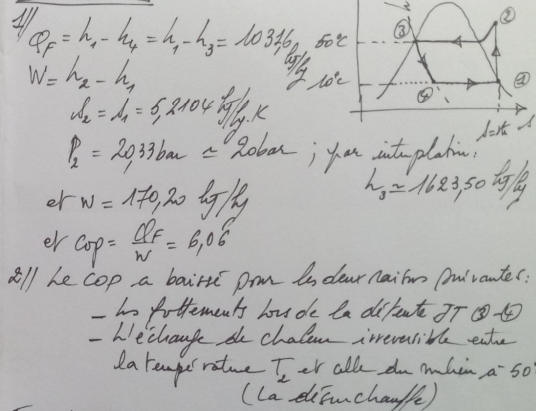 1//
φ_F = h₁ - h₄ = h₁ - h₃ = 1031,6 kJ/kg
W = h₂ - h₁
s₂ = s₁ = 5,2104 kJ/kg.K
P₂ = 20,33 bar ≃ 20 bar ; par interpolation:
h₃ ≃ 1623,50 kJ/kg
et W = 170,20 kJ/kg
et COP = φ_F/W = 6,06
50°C
10°C
③
②
④
①
s = cte
s
2// Le COP a baissé pour les deux raisons suivantes:
- Les frottements lors de la détente JT ③-④
- L'échange de chaleur irreversible entre
la température T₂ et celle du milieu à 50°
(La désurchauffe)